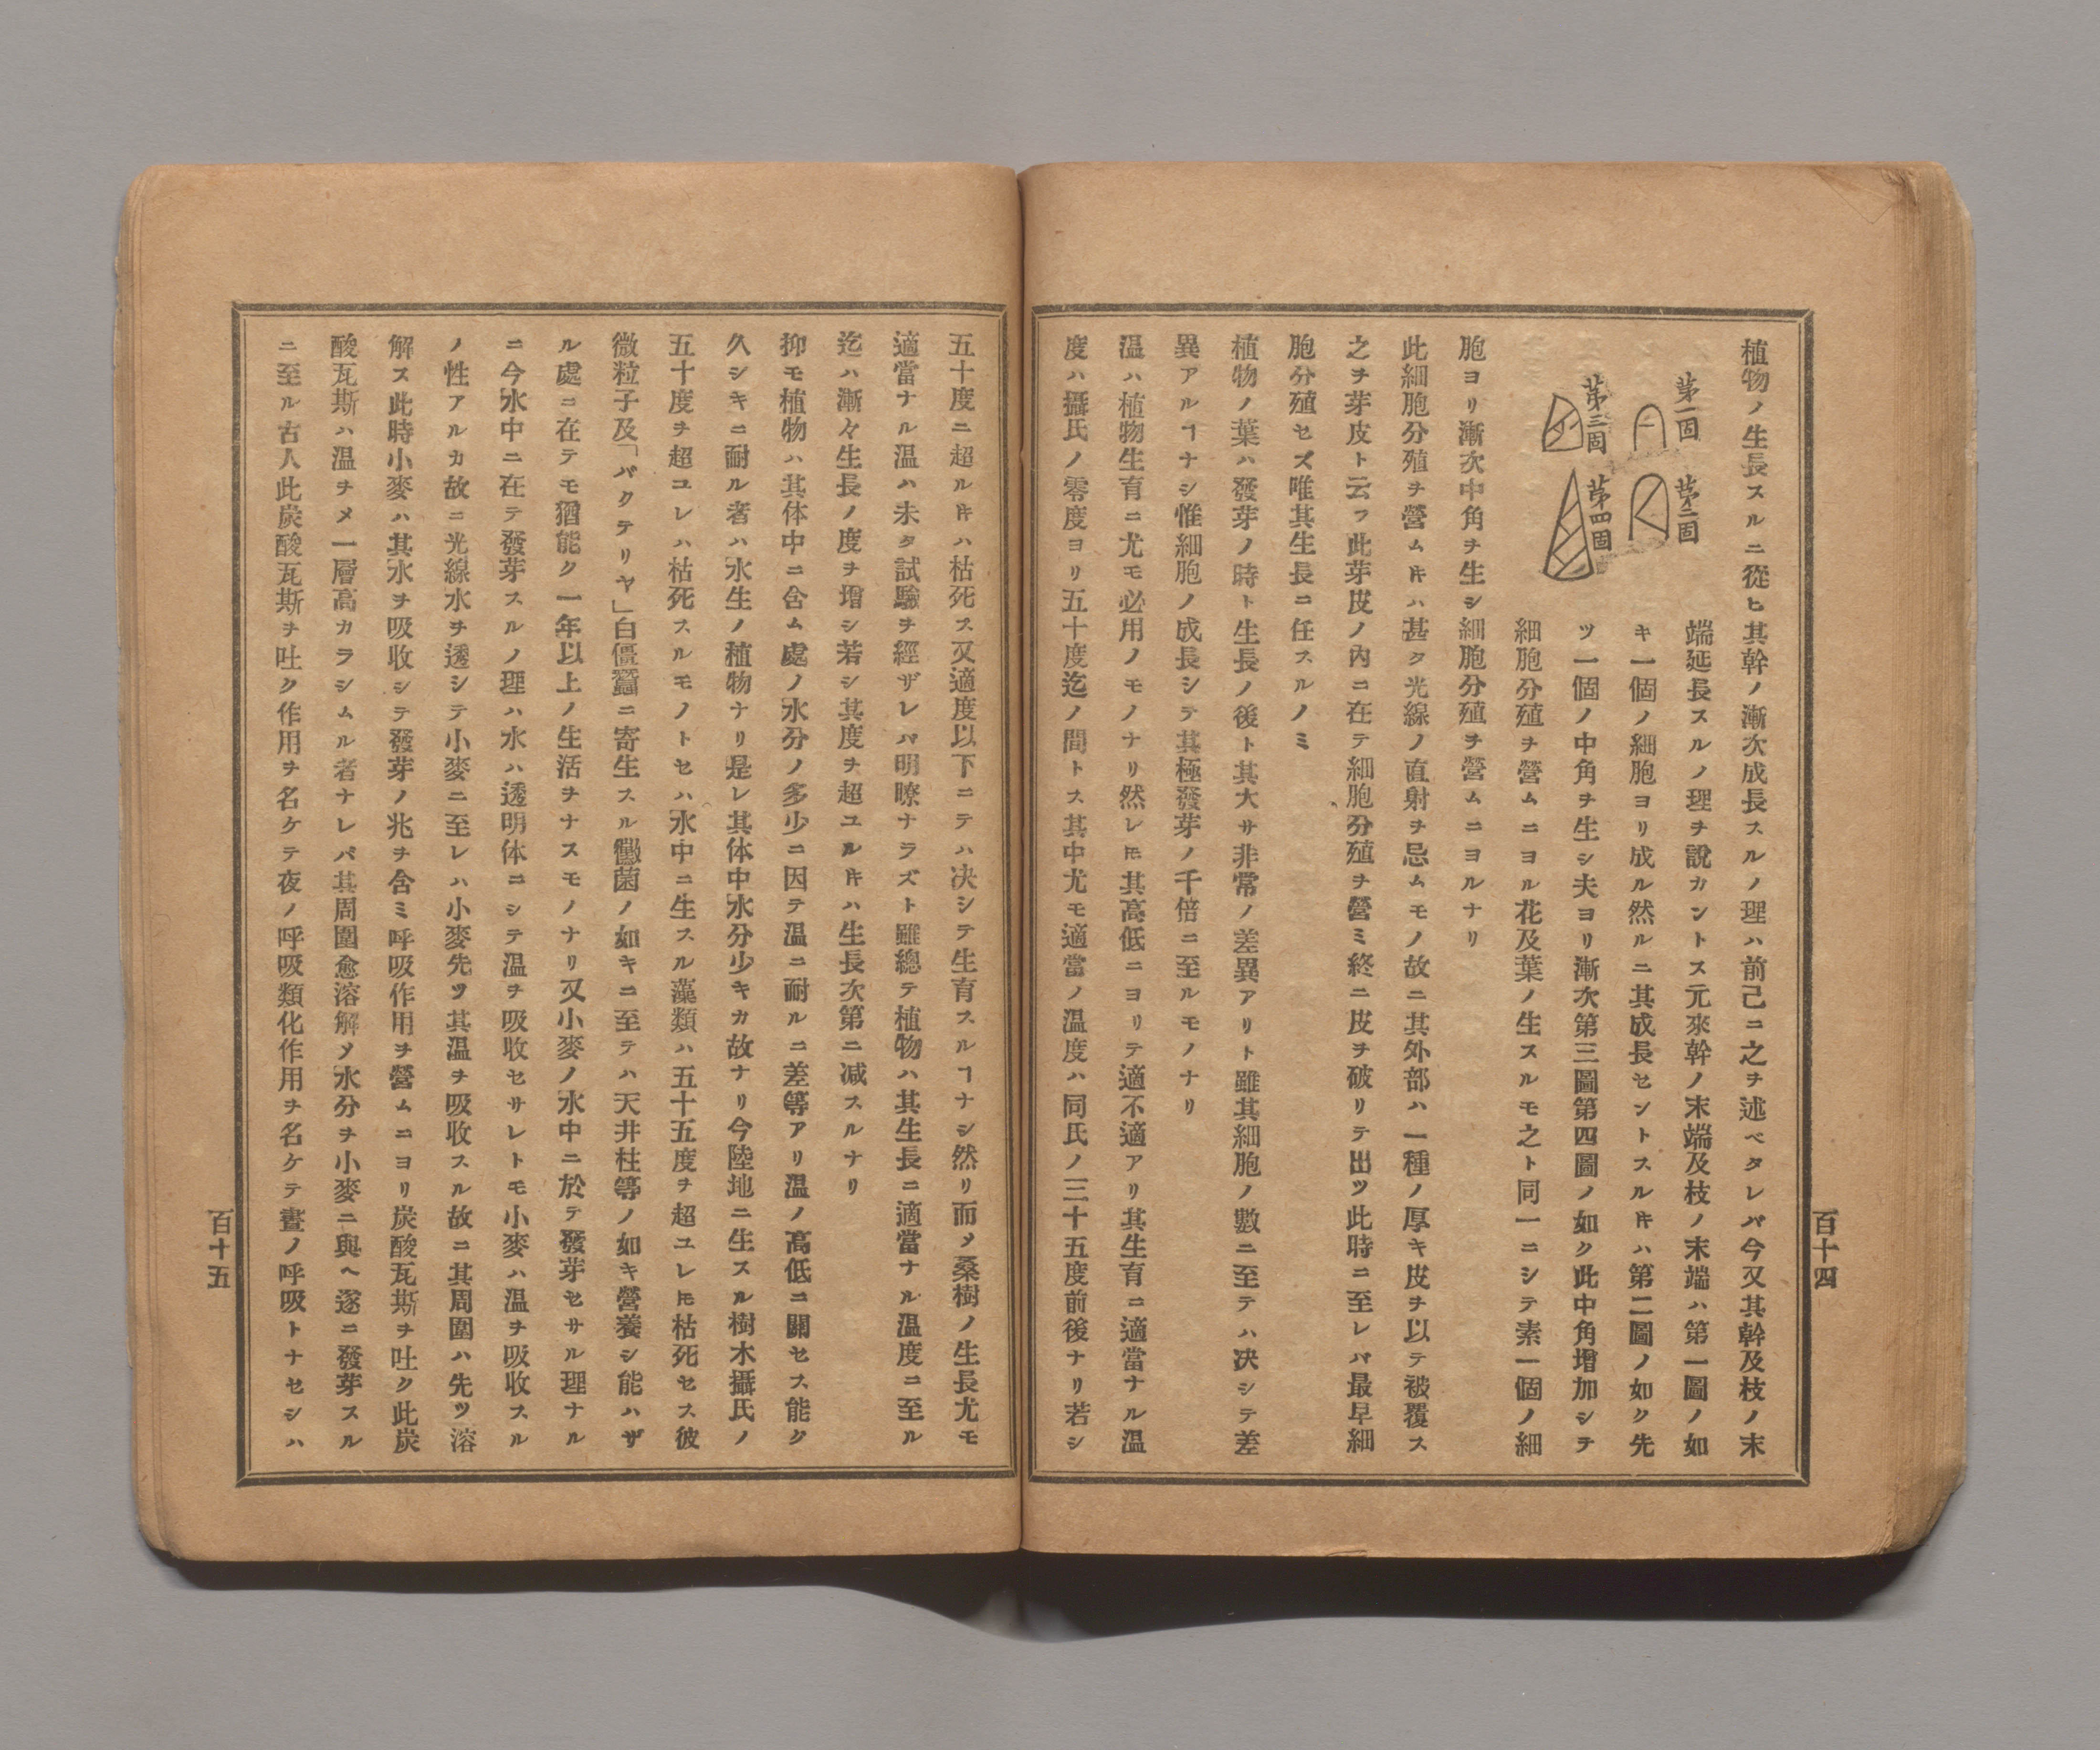 植物ノ生長スルニ從ヒ其幹ノ漸次成長スルノ理ハ前己ニ之ヲ述ベタレバ今又其幹及枝ノ末
第一圖
第二圖
第三圖
第四圖
端延長スルノ理ヲ說カントス元來幹ノ末端及枝ノ末端ハ第一圖ノ如
キ一個ノ細胞ヨリ成ル然ルニ其成長セントスル𪜈ハ第二圖ノ如ク先
ツ一個ノ中角ヲ生シ夫ヨリ漸次第三圖第四圖ノ如ク此中角增加シテ
細胞分殖ヲ營ムニヨル花及葉ノ生スルモ之ト同一ニシテ素一個ノ細
胞ヨリ漸次中角ヲ生シ細胞分殖ヲ營ムニヨルナリ
此細胞分殖ヲ營ム𪜈ハ甚タ光線ノ直射ヲ忌ムモノ故ニ其外部ハ一種ノ厚キ皮ヲ以テ被覆ス
之ヲ芽皮ト云フ此芽皮ノ內ニ在テ細胞分殖ヲ營ミ終ニ皮ヲ破リテ出ツ此時ニ至レバ最早細
胞分殖セズ唯其生長ニ任スルノミ
植物ノ葉ハ發芽ノ時ト生長ノ後ト其大サ非常ノ差異アリト雖其細胞ノ數ニ至テハ決シテ差
異アルヿナシ惟細胞ノ成長シテ其極發芽ノ千倍ニ至ルモノナリ
温ハ植物生育ニ尤モ必用ノモノナリ然レ𪜈其高低ニヨリテ適不適アリ其生育ニ適當ナル温
度ハ攝氏ノ零度ヨリ五十度迄ノ間トス其中尤モ適當ノ温度ハ同氏ノ三十五度前後ナリ若シ
百十四
五十度ニ超ル𪜈ハ枯死ス又適度以下ニテハ决シテ生育スルヿナシ然リ而〆桑樹ノ生長尤モ
適當ナル温ハ未タ試驗ヲ經ザレバ明瞭ナラズト雖總テ植物ハ其生長ニ適當ナル温度ニ至ル
迄ハ漸々生長ノ度ヲ增シ若シ其度ヲ超ユル𪜈ハ生長次第ニ減スルナリ
抑モ植物ハ其体中ニ含ム處ノ水分ノ多少ニ因テ温ニ耐ルニ差等アリ温ノ高低ニ關セス能ク
久シキニ耐ル者ハ水生ノ植物ナリ是レ其体中水分少キカ故ナリ今陸地ニ生スル樹木攝氏ノ
五十度ヲ超ユレハ枯死スルモノトセハ水中ニ生スル藻類ハ五十五度ヲ超ユレ𪜈枯死セス彼
微粒子及「バクテリヤ」白僵蠶ニ寄生スル黴菌ノ如キニ至テハ天井柱等ノ如キ營養シ能ハザ
ル處ニ在テモ猶能ク一年以上ノ生活ヲナスモノナリ又小麥ノ水中ニ於テ發芽セサル理ナル
ニ今水中ニ在テ發芽スルノ理ハ水ハ透明体ニシテ温ヲ吸收セサレトモ小麥ハ温ヲ吸收スル
ノ性アルカ故ニ光線水ヲ透シテ小麥ニ至レハ小麥先ツ其温ヲ吸收スル故ニ其周圍ハ先ツ溶
解ス此時小麥ハ其水ヲ吸收シテ發芽ノ兆ヲ含ミ呼吸作用ヲ營ムニヨリ炭酸瓦斯ヲ吐ク此炭
酸瓦斯ハ温チメ一層高カラシムル者ナレバ其周圍愈溶解〆水分ヲ小麥ニ與ヘ遂ニ發芽スル
ニ至ル古人此炭酸瓦斯ヲ吐ク作用ヲ名ケテ夜ノ呼吸類化作用ヲ名ケテ晝ノ呼吸トナセシハ
百十五